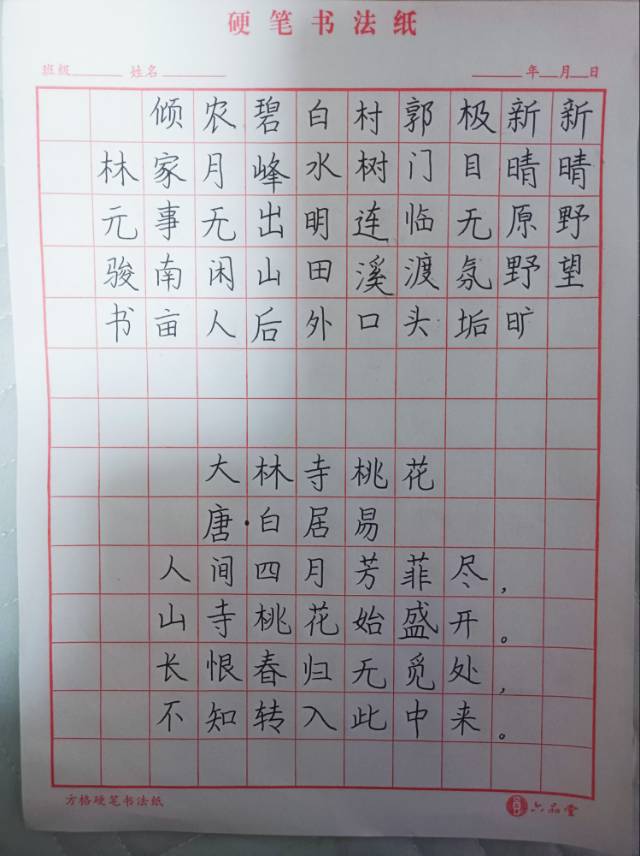 硬笔书法纸
班级 姓名 年 月 日
新晴野望
新晴原野旷
极目无氛垢
郭门临渡头
村树连溪口
白水明田外
碧峰出山后
农月无闲人
倾家事南亩
林元骏书
大林寺桃花
唐·白居易
人间四月芳菲尽，
山寺桃花始盛开。
长恨春归无觅处，
不知转入此中来。
方格硬笔书法纸
六品堂